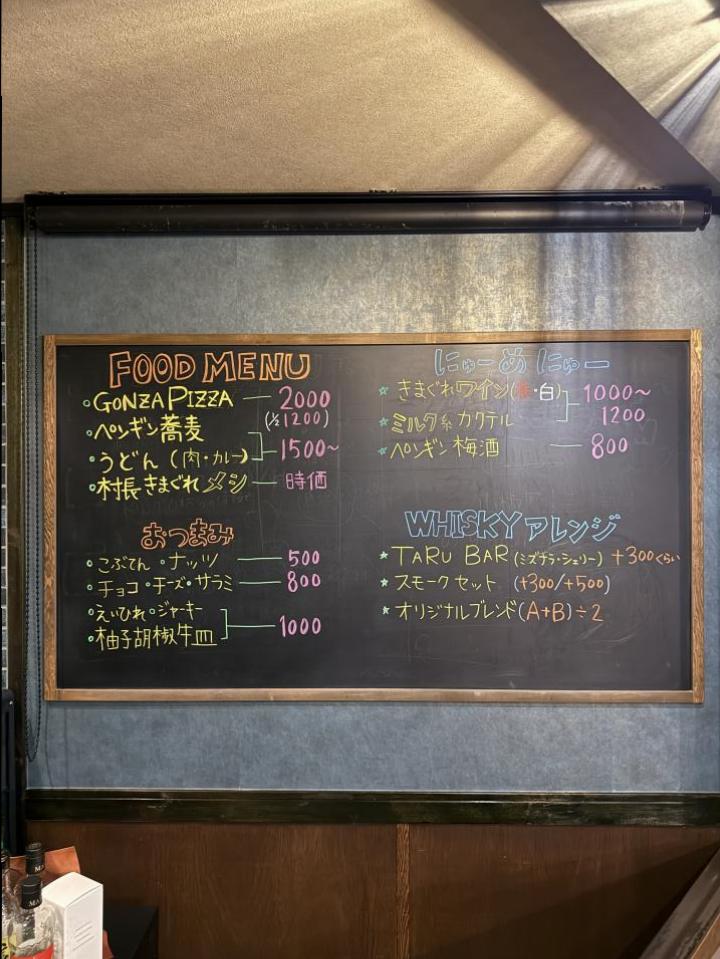 FOOD MENU
・GONZA PIZZA — 2000
(½ 1200)
・ペンギン蕎麦
・うどん (肉・カレー) 1500~
・村長きまぐれメシ — 時価
おつまみ
・こぶてん・ナッツ — 500
・チョコ・チーズ・サラミ — 800
・えいひれ・ジャーキー
・柚子胡椒牛皿 1000
にゅーめにゅー
☆きまぐれワイン(赤・白) 1000~
☆ミルク系カクテル 1200
☆ペンギン梅酒 — 800
WHISKYアレンジ
★TARU BAR (ミズナラ・シェリー) +300くらい
★スモークセット (+300/+500)
★オリジナルブレンド (A+B)÷2
MA
MA